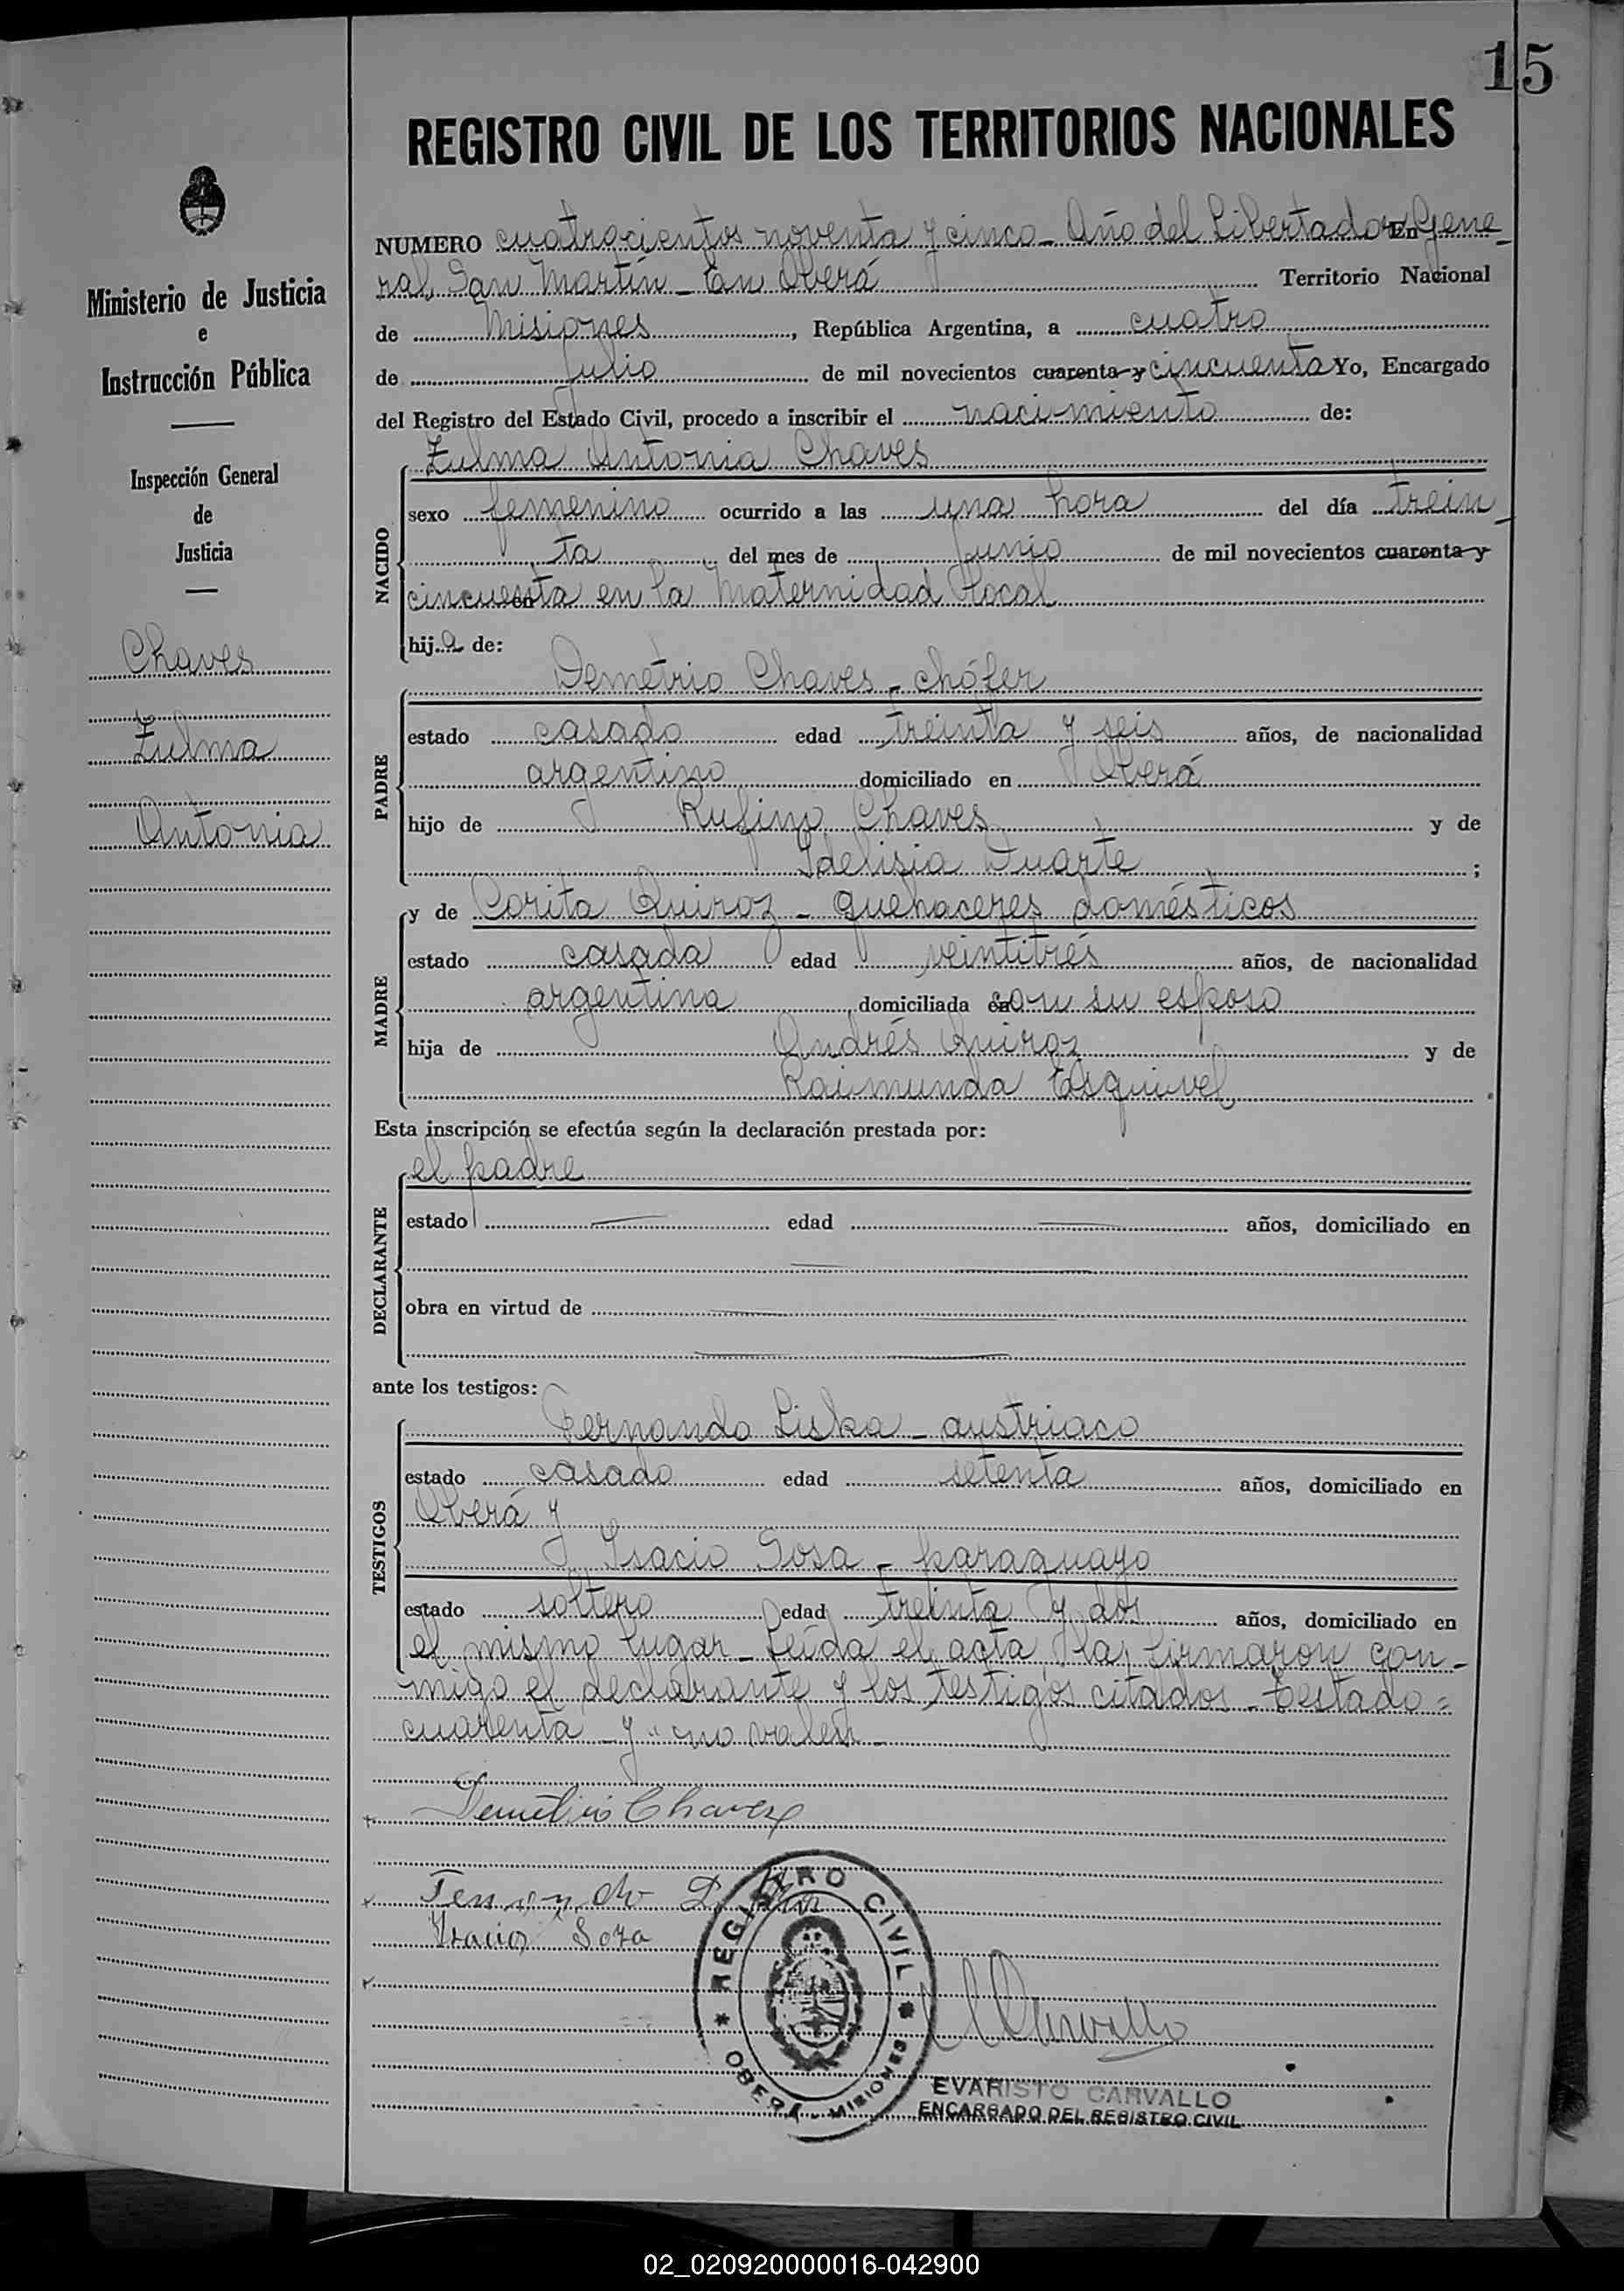 15
REGISTRO CIVIL DE LOS TERRITORIOS NACIONALES
Ministerio de Justicia
e
Instrucción Pública
Inspección General
de
Justicia
Chaves
Zulma
Antonia
NUMERO cuatrocientos noventa y cinco - Año del Libertador En Gene-
ral San Martín - En Oberá Territorio Nacional
de Misiones, República Argentina, a cuatro
de Julio de mil novecientos cuarenta y cincuenta Yo, Encargado
del Registro del Estado Civil, procedo a inscribir el nacimiento de:
Zulma Antonia Chaves
NACIDO
sexo femenino ocurrido a las una hora del día trein-
ta del mes de Junio de mil novecientos cuarenta y
cincuenta en la Maternidad local
hija de:
Demetrio Chaves - chófer
PADRE
estado casado edad treinta y seis años, de nacionalidad
argentino domiciliado en Oberá
hijo de Rufino Chaves y de
Idelisia Duarte ;
y de Corita Quiroz - quehaceres domésticos
MADRE
estado casada edad veintitrés años, de nacionalidad
argentina domiciliada en con su esposo
hija de Andrés Quiroz y de
Raimunda Esquivel.
Esta inscripción se efectúa según la declaración prestada por:
el padre
DECLARANTE
estado edad años, domiciliado en
obra en virtud de
ante los testigos:
Fernando Liska - austriaco
TESTIGOS
estado casado edad setenta años, domiciliado en
Oberá y
Isacio Sosa - paraguayo
estado soltero edad treinta y dos años, domiciliado en
el mismo lugar - Leída el acta, la firmaron con-
migo el declarante y los testigos citados - Testado =
cuarenta y " no valen -
Demetrio Chavez
Fernando
Isacio Soza
REGISTRO CIVIL
OBERÁ - MISIONES
Carvallo
EVARISTO CARVALLO
ENCARGADO DEL REGISTRO CIVIL
02_020920000016-042900